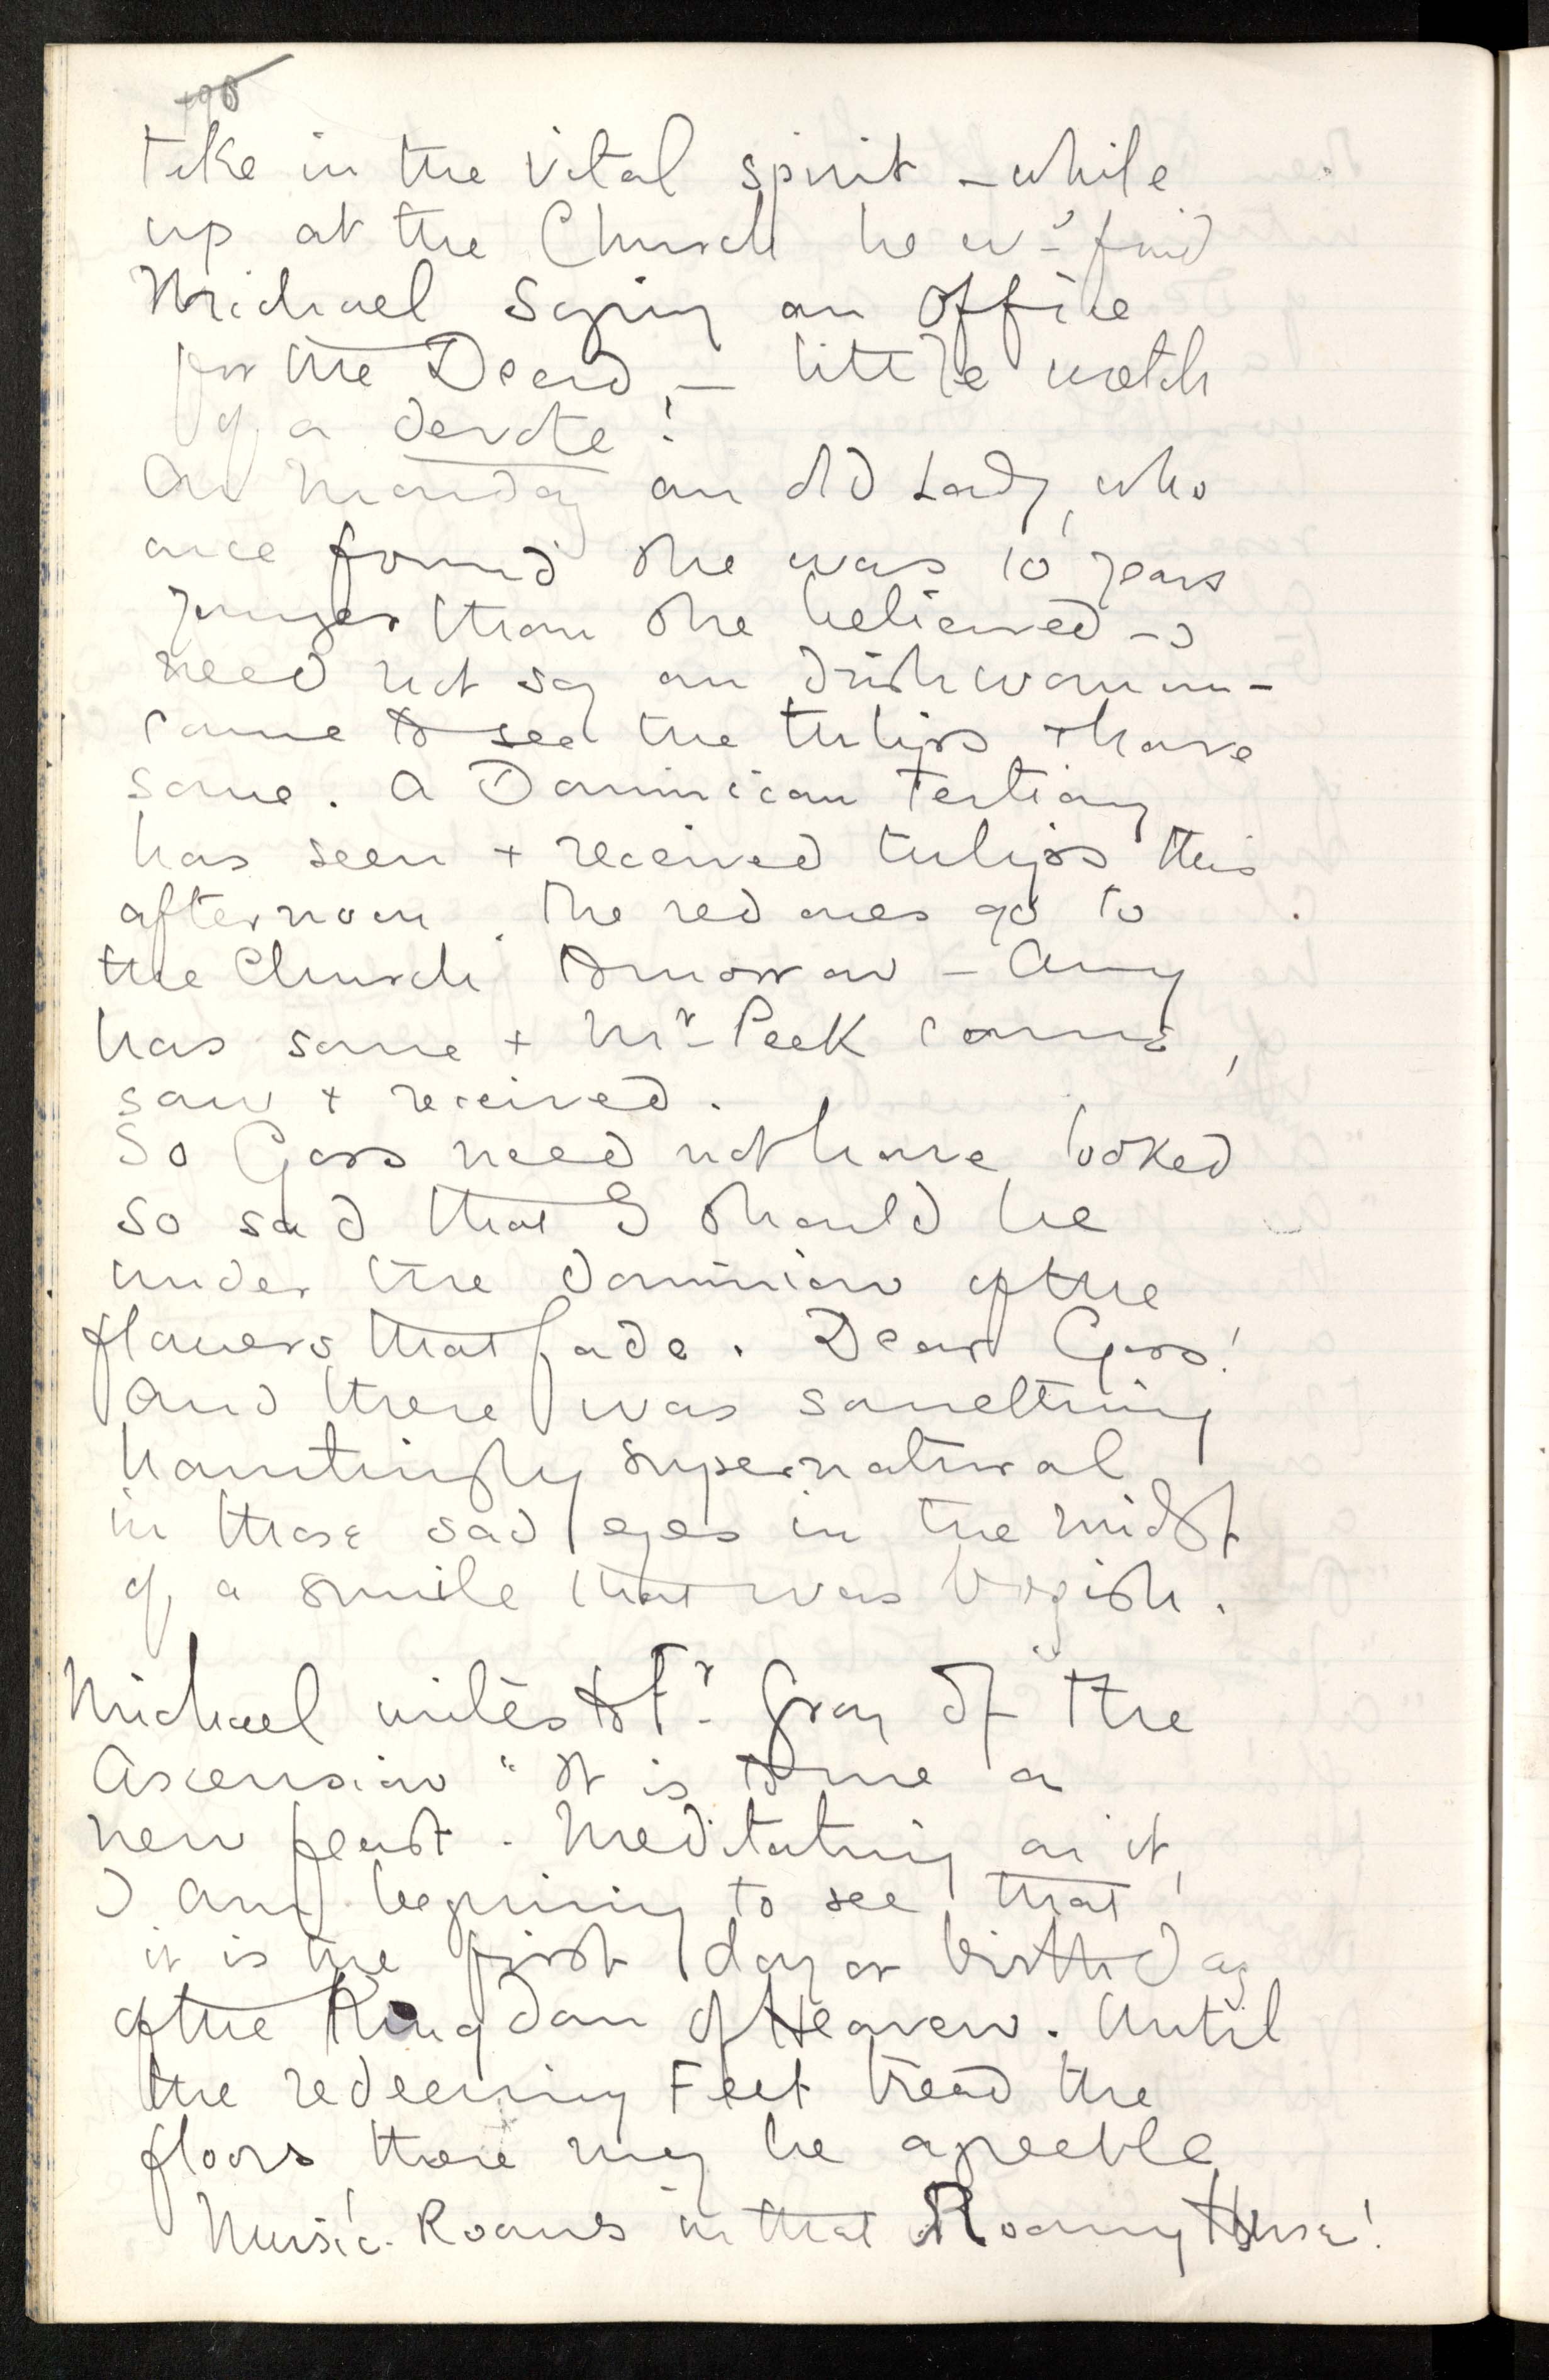 take in the vital spirit – while
up at the Church he wd find
Michael saying an Office
for the Dead, – little wretch
of a devote!
On Monday an old Lady, who
once found she was 10 years
younger than she believed – I
need not say an Irishwoman –
came to see the tulips & have
some. A Dominican Tertiary
has seen & received tulips this
afternoon. The red ones go to
the Church tomorrow – Amy
has some & Mr Peek came,
saw & received.
So Goss need not have looked
so sad that I should be
under the dominion of the
flowers that fade. Dear Goss!
And there was something
hauntingly supernatural
in those sad eyes in the midst
of a smile that was boyish.
Michael writes to Fr Gray of the
Ascension "It is to me a
new feast. Meditating on it,
I am beginning to see that
it is the first day or birthday
of the Kingdom of Heaven. Until
the redeeming Feet tread the
floors there may be agreeble
Music-Rooms in that Roomy House!